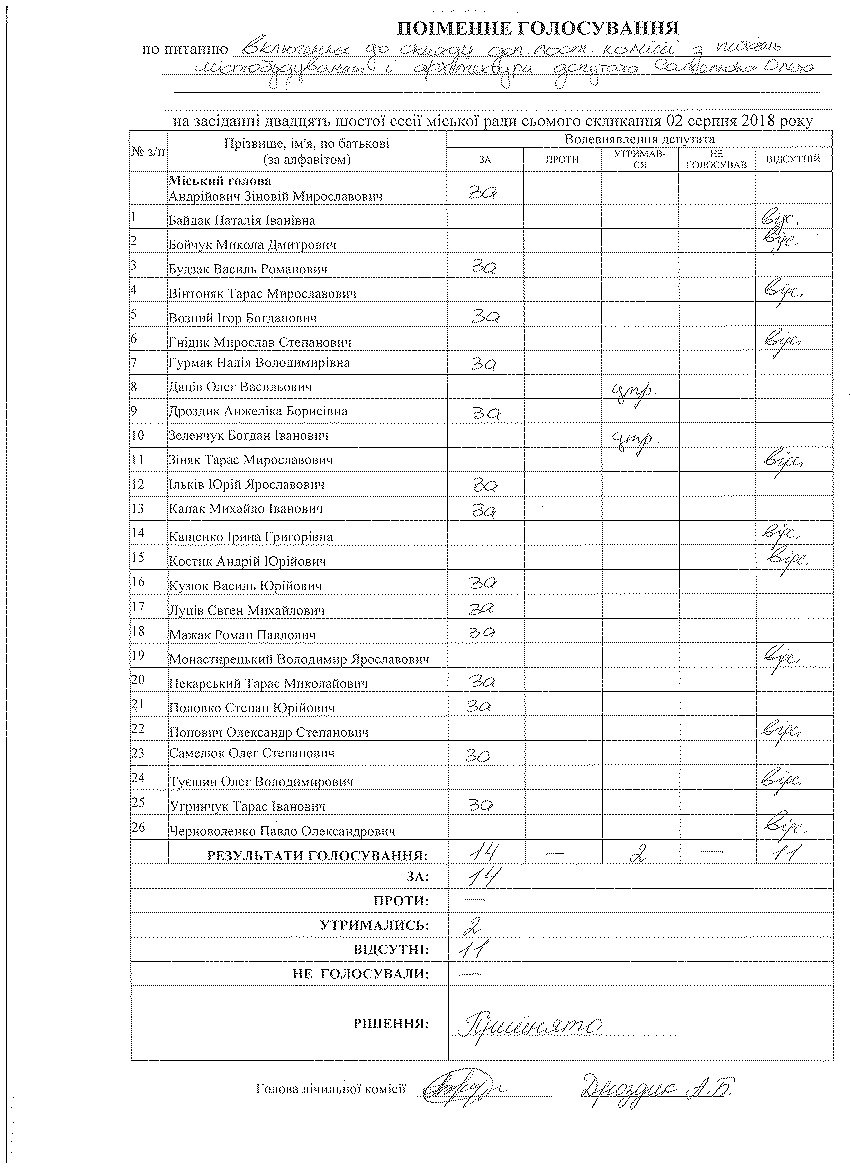 ПОІМЕННЕ ГОЛОСУВАННЯ
по питанню Включення до складу деп. пост. комісії з питань
містобудування і архітектури депутата Самелюка Олега
на засіданні двадцять шостої сесії міської ради сьомого скликання 02 серпня 2018 року
№ з/п Прізвище, ім'я, по батькові (за алфавітом) Волевиявлення депутата
ЗА ПРОТИ УТРИМАВ-СЯ НЕ ГОЛОСУВАВ ВІДСУТНІЙ
Міський голова
Андрійович Зіновій Мирославович за
1 Байдак Наталія Іванівна відс.
2 Бойчук Микола Дмитрович відс.
3 Будзак Василь Романович за
4 Вінтоняк Тарас Мирославович відс.
5 Возний Ігор Богданович за
6 Гнідик Мирослав Степанович відс.
7 Гурмак Надія Володимирівна за
8 Даців Олег Васильович утр.
9 Дроздик Анжеліка Борисівна за
10 Зеленчук Богдан Іванович утр.
11 Зіняк Тарас Мирославович відс.
12 Ільків Юрій Ярославович за
13 Капак Михайло Іванович за
14 Кащенко Ірина Григорівна відс.
15 Костик Андрій Юрійович відс.
16 Кузюк Василь Юрійович за
17 Луців Євген Михайлович за
18 Мажак Роман Павлович за
19 Монастирецький Володимир Ярославович відс.
20 Пекарський Тарас Миколайович за
21 Половко Степан Юрійович за
22 Попович Олександр Степанович відс.
23 Самелюк Олег Степанович за
24 Туєшин Олег Володимирович відс.
25 Угринчук Тарас Іванович за
26 Черноволенко Павло Олександрович відс.
РЕЗУЛЬТАТИ ГОЛОСУВАННЯ: 14 — 2 — 11
ЗА: 14
ПРОТИ: —
УТРИМАЛИСЬ: 2
ВІДСУТНІ: 11
НЕ ГОЛОСУВАЛИ: —
РІШЕННЯ: Прийнято
Голова лічильної комісії Дроздик А.Б.